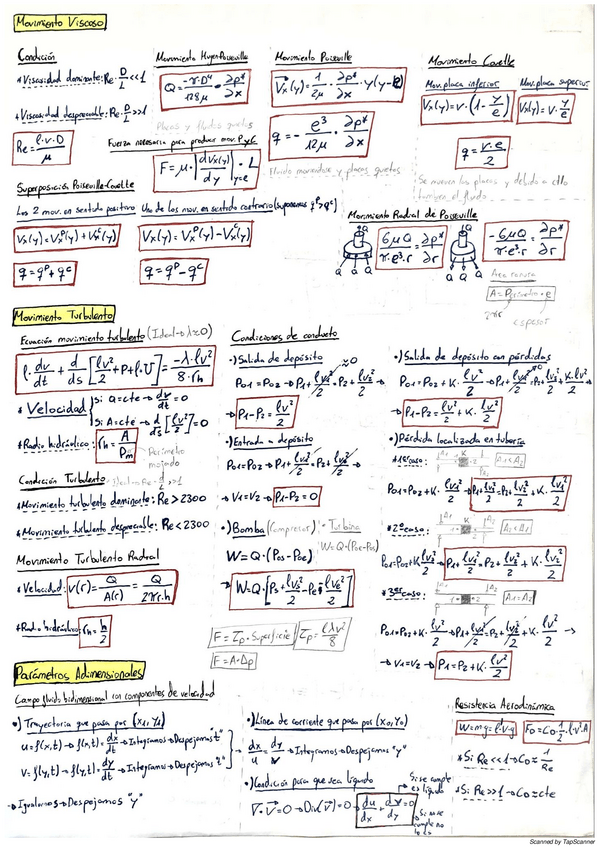 Movimiento Viscoso
Condición
*Viscosidad dominante: Re·D/L<<1
*Viscosidad despreciable: Re·D/L>>1
Re = ρ·v·D/μ
Movimiento Hagen-Poiseuille
Q = -π·D⁴/128μ · ∂P*/∂x
Placas y fluidos quietos
Fuerza necesaria para producir mov. P y C
F = μ·|dVx(y)/dy|y=e · L
Movimiento Poiseuille
Vx(y) = 1/2μ · ∂P*/∂x · y(y-e)
q = -e³/12μ · ∂P*/∂x
Fluido moviendose y placas quietas
Movimiento Couette
Mov. placa inferior
Vx(y) = v·(1 - y/e)
Mov. placa superior
Vx(y) = v·y/e
q = v·e/2
Se mueven las placas y debido a ello
tambien el fluido
Superposición Poiseuille-Couette
Los 2 mov. en sentido positivo
Vx(y) = Vxᴾ(y) + Vxᶜ(y)
q = qᴾ + qᶜ
Uno de los mov. en sentido contrario (suponemos qᴾ>qᶜ)
Vx(y) = Vxᴾ(y) - Vxᶜ(y)
q = qᴾ - qᶜ
Movimiento Radial de Poiseuille
Q Q Q
6μQ/π·e³·r = ∂P*/∂r
Q Q Q
-6μQ/π·e³·r = ∂P*/∂r
Area ranura
A = Perimetro·e
2πr espesor
Movimiento Turbulento
Ecuación movimiento turbulento (Ideal→λ≈0)
ρ·dv/dt + d/ds[ρv²/2 + P + ρ·U] = -λ·ρv²/8·rh
*Velocidad { Si a=cte→dv/dt=0
Si A=cte→d/ds[ρv²/2]=0
*Radio hidráulico: rh = A/Pm
Perimetro
mojado
Condición Turbulento
*Movimiento turbulento dominante: Re>2300
*Movimiento turbulento despreciable: Re<2300
Movimiento Turbulento Radial
*Velocidad: v(r) = Q/A(r) = Q/2πr·h
*Radio hidráulico: rh = h/2
Condiciones de conducto
·)Salida de depósito
P01=P02→P1+ρv1²/2≈0=P2+ρv2²/2
→P1-P2=ρv²/2
·)Entrada a depósito
P01=P02→P1+ρv1²/2=P2+ρv2²/2→
→V1=V2→P1-P2=0
·)Bomba (Compresor)·Turbina
W=Q·(Ps-Pe)
W=Q·(Pe-Ps)
→W=Q·[Ps+ρvs²/2-Pe-ρve²/2]
F=τp·Superficie
τp=ρλv²/8
F=A·Δp
·)Salida de depósito con pérdidas
P01=P02+K·ρv²/2→P1+ρv1²/2≈0=P2+ρv2²/2+K·ρv²/2
→P1-P2=ρv²/2+K·ρv²/2
·)Pérdida localizada en tubería
*1ºcaso: A1 K A2 1 2 A1<A2
P01=P02+K·ρv1²/2→P1+ρv1²/2=P2+ρv2²/2+K·ρv1²/2
*2ºcaso: A1 A2 1 2 A2<A1
P01=P02+K·ρv2²/2→P1+ρv1²/2=P2+ρv2²/2+K·ρv2²/2
*3ºcaso: A1 A2 1 2 A1=A2
P01=P02+K·ρv²/2→P1+ρv1²/2=P2+ρv2²/2+K·ρv²/2→
→V1=V2→P1=P2+K·ρv²/2
Parámetros Adimensionales
Campo fluido bidimensional con componentes de velocidad
·)Trayectoria que pasa por (X1,Y1)
u=f(x,t)→f(x,t)=dx/dt→Integramos→Despejamos "t"
v=f(y,t)→f(y,t)=dy/dt→Integramos→Despejamos "t"
→Igualamos→Despejamos "y"
·)Línea de corriente que pasa por (X0,Y0)
→dx/u=dy/v→Integramos→Despejamos "y"
·)Condición para que sea líquido
∇·V=0→Div(V)=0→du/dx+dv/dy=0
Si se cumple
es líquido
Si no se
cumple no
lo es
Resistencia Aerodinámica
W=mg=ρ·V·g
FD=CD·1/2·ρ·v²·A
*Si Re<<1→CD≈1/Re
*Si Re>>1→CD≈cte
Scanned by TapScanner